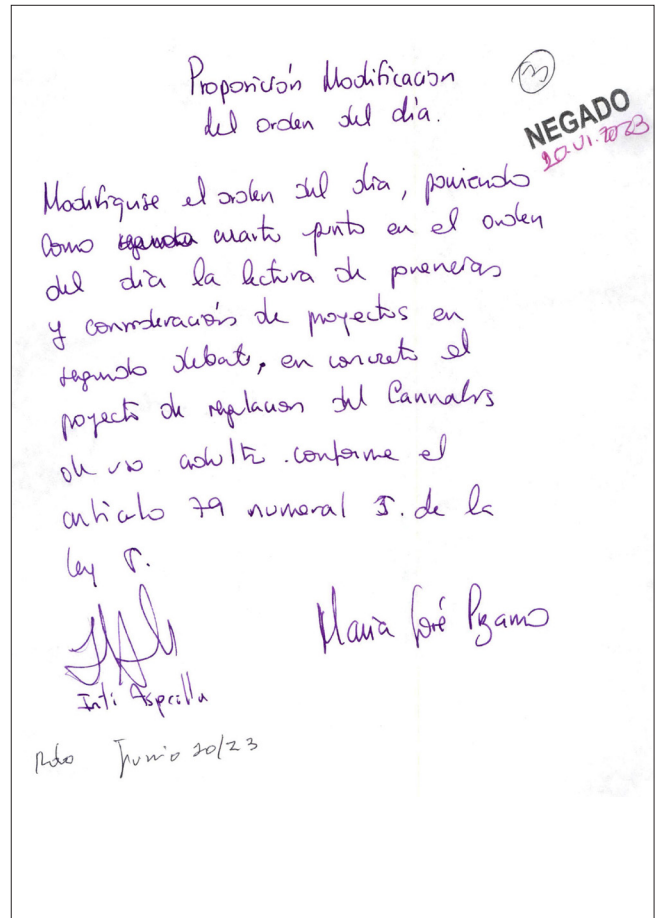 Proposición Modificacion
del orden del día.
3
NEGADO
20.VI.2023
Modifiquese el orden del dia, poniendo
como segundo cuarto punto en el orden
del dia la lectura de ponencias
y consideración de proyectos en
segundo debate, en concreto el
proyecto de regulacion del Cannabis
de uso adulto conforme el
articulo 79 numeral 5. de la
ley 5.
Maria José Pizarro
Inti Asprilla
Rdo Junio 20/23